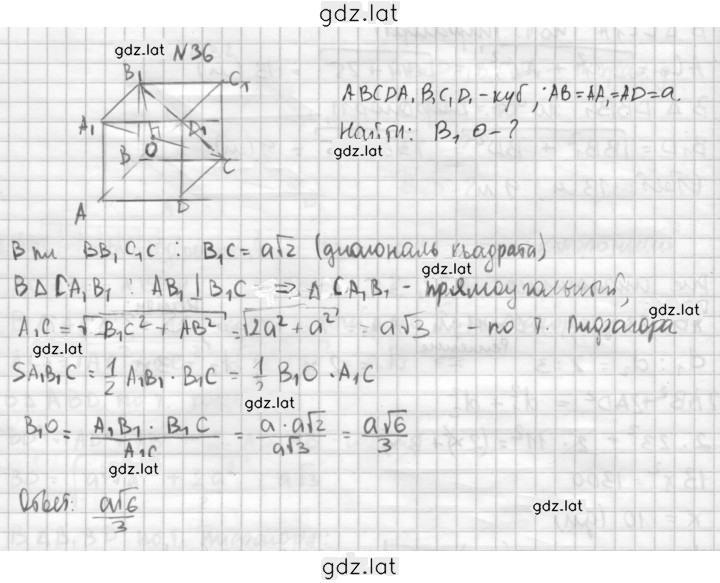 gdz.lat
gdz.lat N 36
B₁ C₁
A₁ D₁
B O C
A D
ABCDA₁B₁C₁D₁ - куб; AB=AA₁=AD=a.
Найти: B₁O-?
gdz.lat
В пл BB₁C₁C : B₁C = a√2 (диагональ квадрата)
gdz.lat
В Δ CA₁B₁ : AB₁ ⊥ B₁C ⇒ Δ CA₁B₁ - прямоугольный,
gdz.lat
A₁C = √(B₁C² + AB²) = √(2a² + a²) = a√3 - по т. Пифагора
gdz.lat
SA₁B₁C = 1/2 A₁B₁ · B₁C = 1/2 B₁O · A₁C
gdz.lat
B₁O = (A₁B₁ · B₁C)/(A₁C) = (a · a√2)/(a√3) = (a√6)/3
gdz.lat
Ответ: (a√6)/3
gdz.lat
gdz.lat